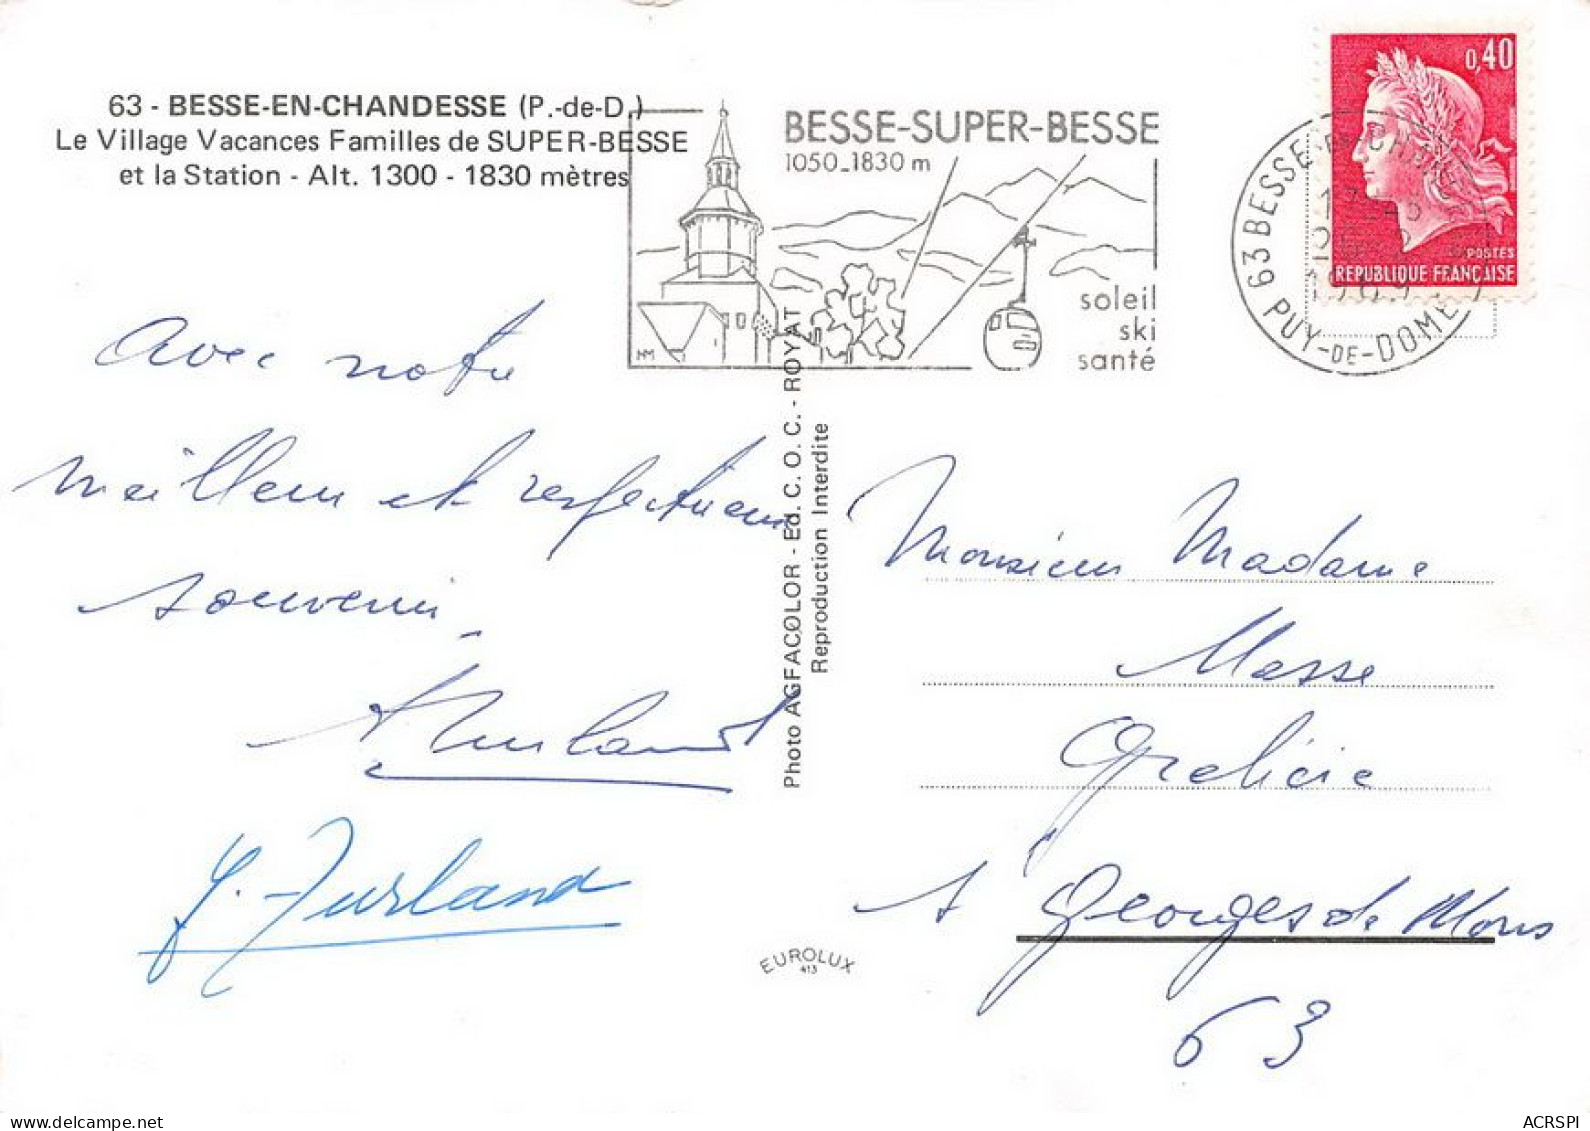 63 - BESSE-EN-CHANDESSE (P.-de-D.)
Le Village Vacances Familles de SUPER-BESSE
et la Station - Alt. 1300 - 1830 mètres
BESSE-SUPER-BESSE
1050_1830 m
soleil
ski
santé
NM
0,40
POSTES
REPUBLIQUE FRANÇAISE
63 BESSE EN CHAND
1969
PUY-DE-DOME
Avec notre
meilleur et respectueux
souvenir
J. Furland
Photo AGFACOLOR - Ed. C. O. C. - ROYAT
Reproduction Interdite
EUROLUX
413
Monsieur Madame
Masse
S Georges de Mons
63
delcampe.net
ACRSPI